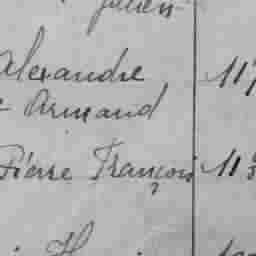 Julien
Alexandre 117
Armand
Pierre François 113